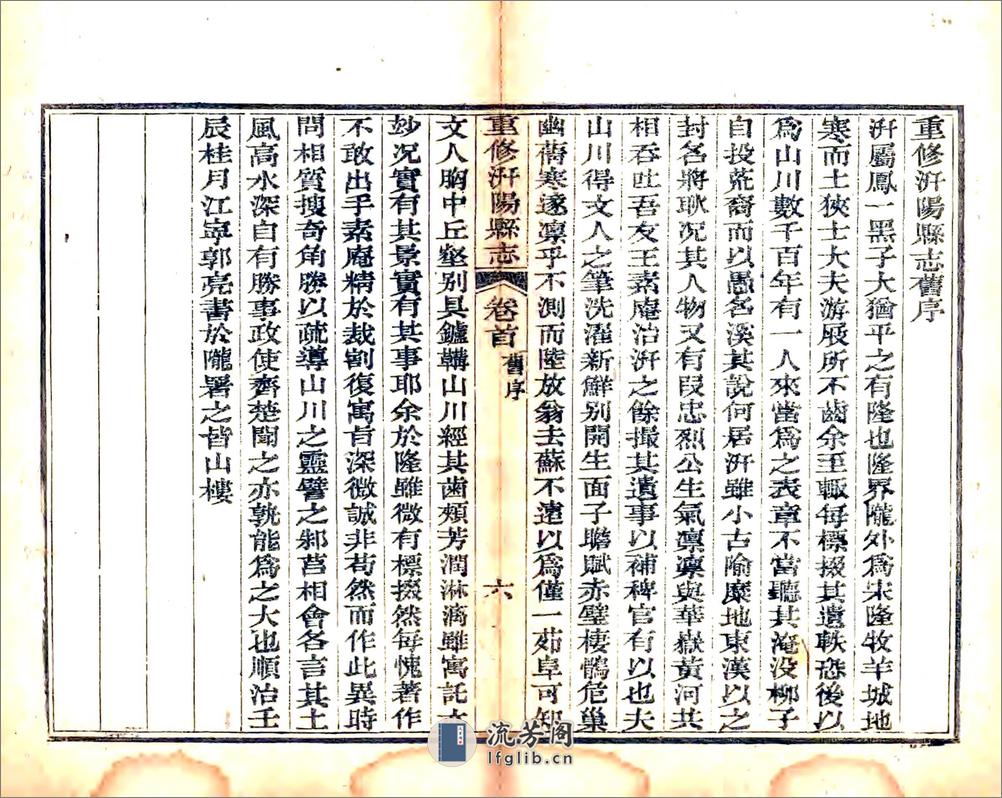 重修汧陽縣志舊序
汧屬鳳一黑子大猶平之有隆也隆界隴外爲宋隆牧羊城地
寒而土狹士大夫游屐所不齒余至輙每標掇其遺軼恐後以
爲山川數千百年有一人來當爲之表章不當聽其淹没柳子
自投荒裔而以愚名溪其說何居汧雖小古隃麋地東漢以之
封名將耿况其人物又有段忠烈公生氣凛凛與華嶽黄河共
相吞吐吾友王素庵治汧之餘撮其遺事以補稗官有以也夫
山川得文人之筆洗濯新鮮别開生面子瞻賦赤壁棲鶻危巢
幽蒨寒邃凛乎不測而陸放翁去蘇不遠以爲僅一茆阜可知
重修汧陽縣志
卷首
舊序
六
文人胸中丘壑别具鑪韝山川經其齒頰芳潤淋漓雖寓託亦
妙况實有其景實有其事耶余於隆雖微有標掇然每愧著作
不敢出手素庵精於裁割復寓旨深微誠非苟然而作此異時
問相質搜奇角勝以疏導山川之靈譬之邾莒相會各言其土
風高水深自有勝事政使齊楚聞之亦孰能爲之大也順治壬
辰桂月江寧郭亮書於隴署之皆山樓
流芳阁
lfglib.cn